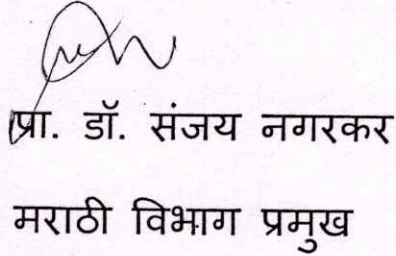 प्रा. डॉ. संजय नगरकर
मराठी विभाग प्रमुख